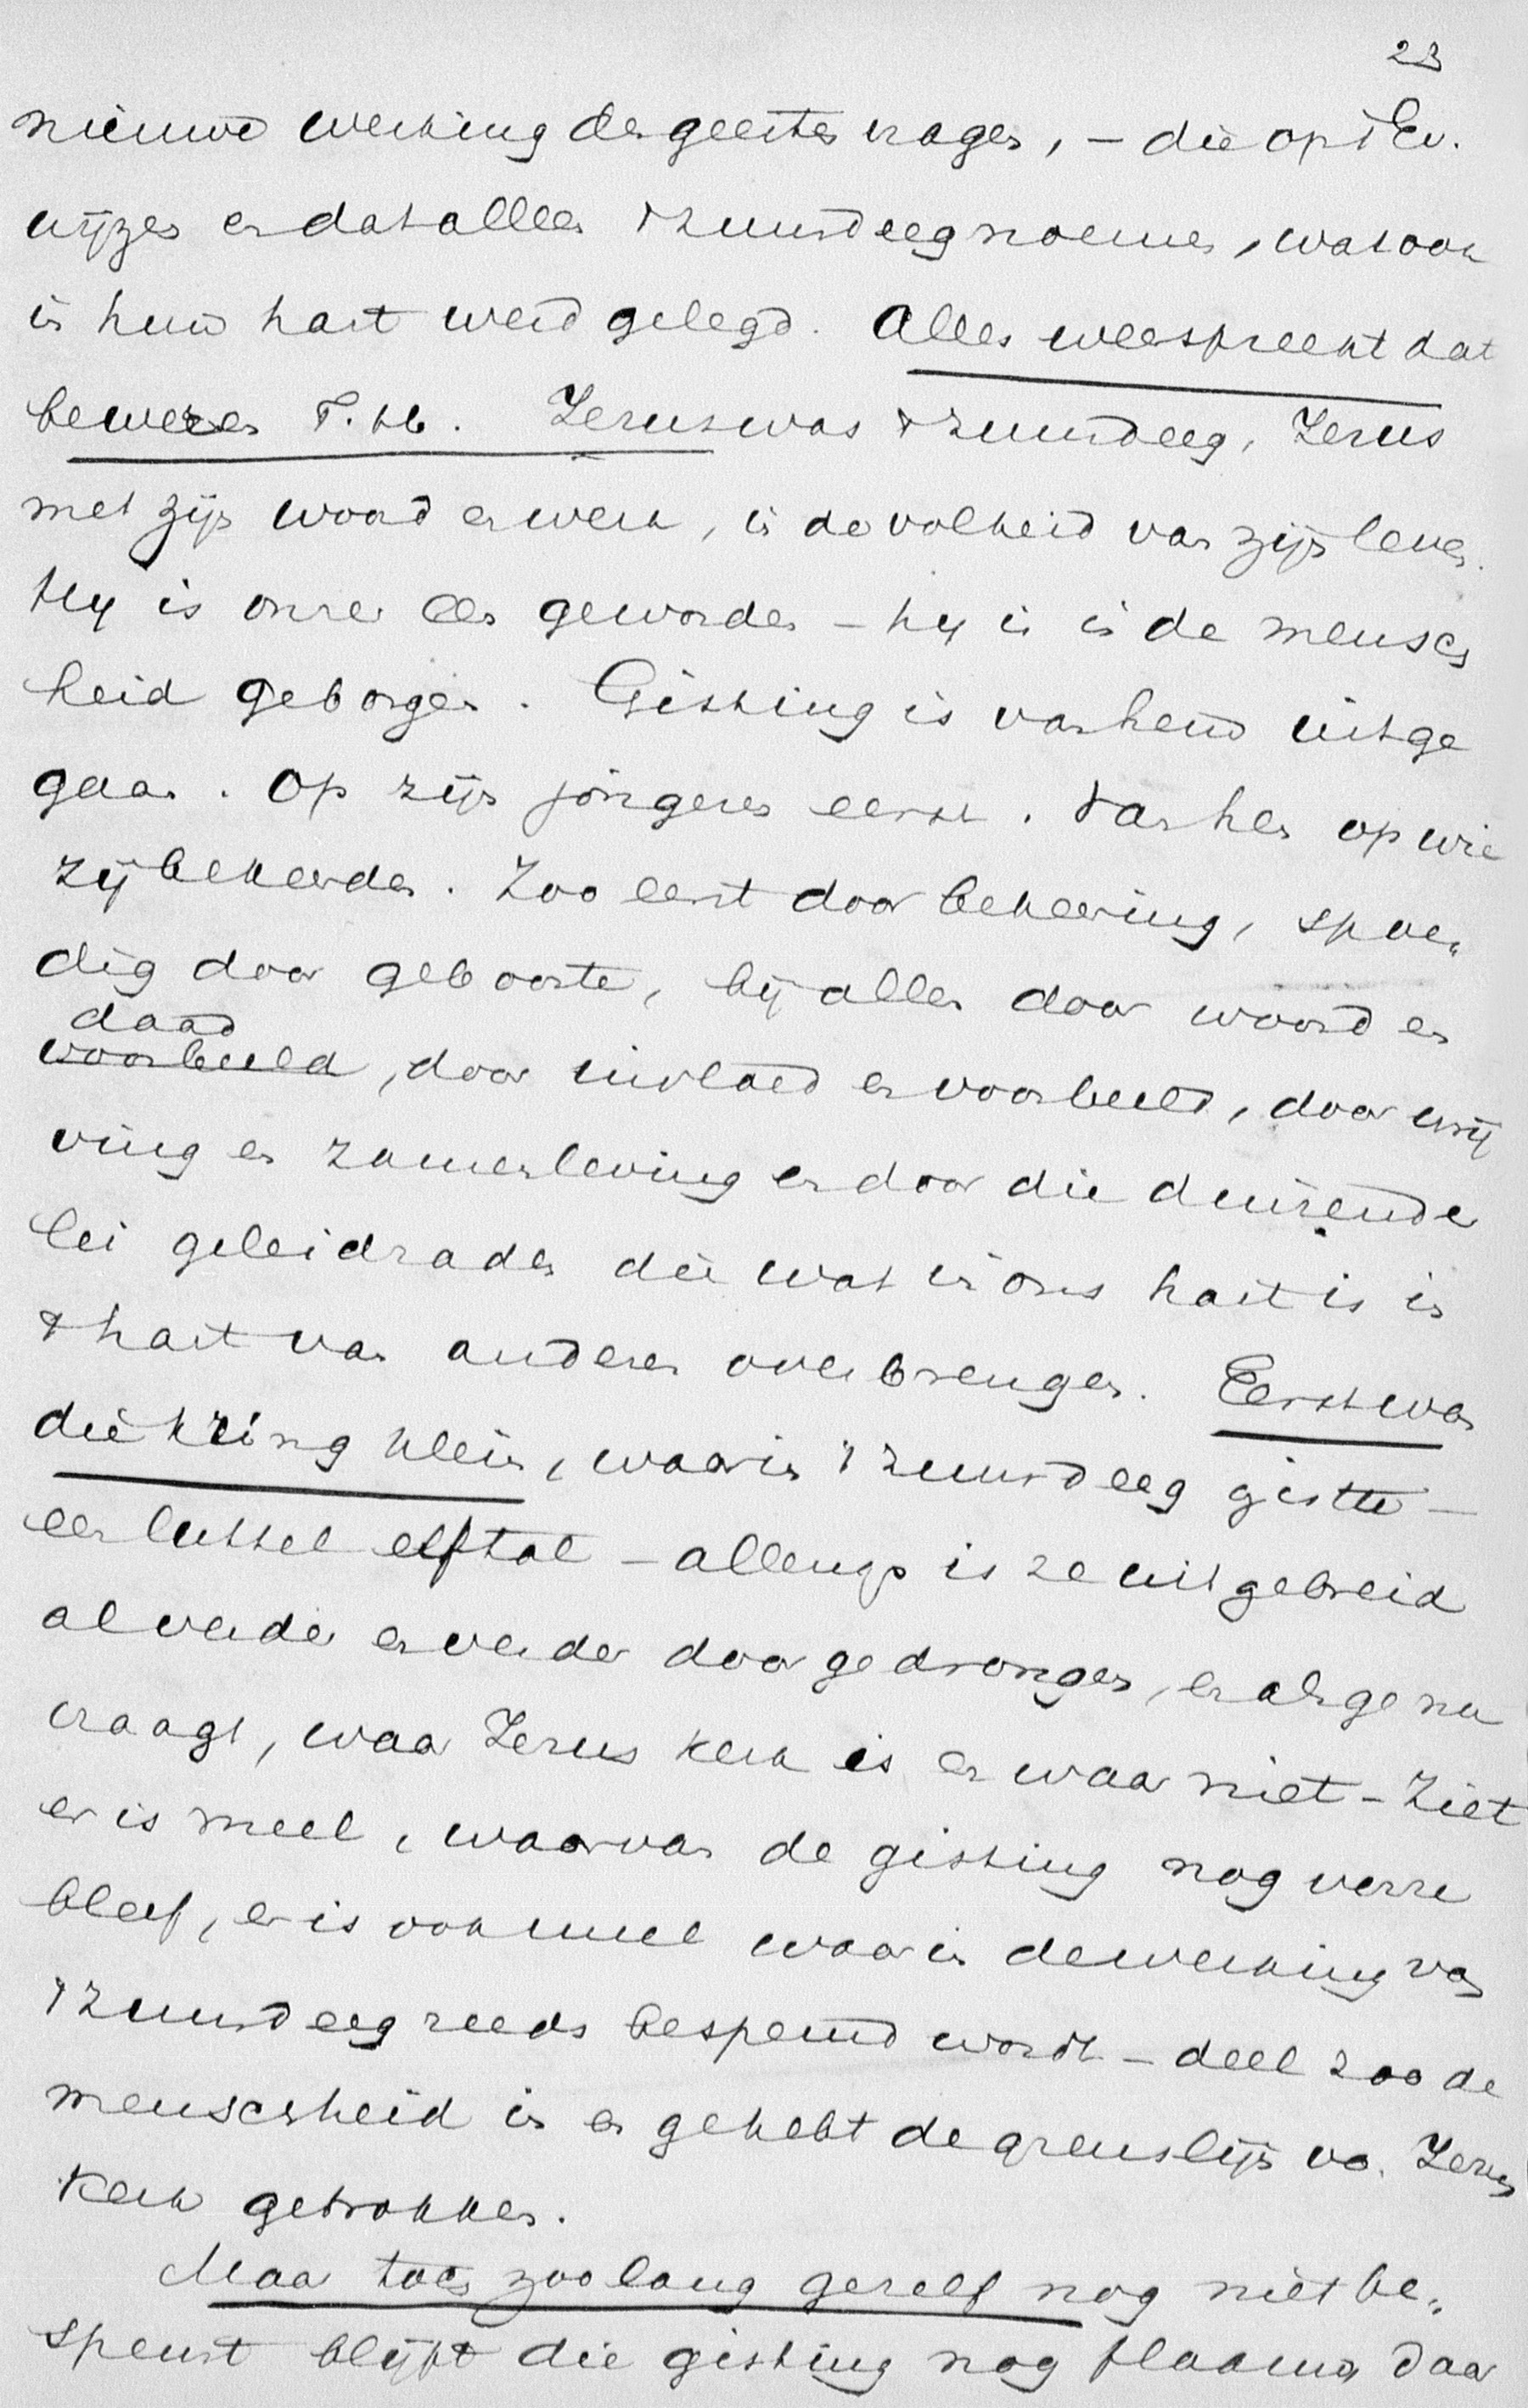 23
nieuwe werking des geestes vragen, — die op 't Ev.
wijzen en dat alleen 't zuurdeeg noemen, wat ook
in hun hart werd gelegd. Alles weerspreekt dat
beweren T. H. Jezus was 't zuurdeeg, Jezus
met zijn woord en werk, in de volheid van zijn leven.
Hy is onzer een geworden — hy is in de mensch
heid geborgen. Gisting is van hem uitge
gaan. Op zijn jongeren eerst. Van hen op wie
zij bekeerden. Zoo eerst door bekeering, spoe„
dig door geboorte, bij allen door woord en
daad
voorbeeld, door invloed en voorbeeld, door wrij
ving en zamenleving en door die duizender
lei geleidraden die wat in ons hart is in
't hart van anderen overbrengen. Eerst was
die kring klein, waarin 't zuurdeeg gistte —
een luttel elftal — allengs is ze uitgebreid
al verder en verder doorgedrongen, en als ge nu
vraagt, waar Jezus kerk is en waar niet — Ziet
er is meel, waarvan de gisting nog verre
bleef, er is ook meel waarin de werking van
't zuurdeeg reeds bespeurd wordt — deel zoo de
menschheid in en ge hebt de grenslijn v. Jezus
Kerk getrokken.
Maar toch zoolang gezelf nog niet be„
speurt blijft die gisting nog flaauw daar